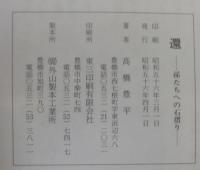 還
――孫たちへの石摺り――
印刷 昭和五十六年三月一日
発行 昭和五十六年四月一日
著者 高橋豊平
豊橋市西七根町字東浜辺六八
電話〇五三二(21)二〇三一
印刷所 東三印刷有限会社
豊橋市中柴町七四
電話〇五三二(52)七四一七
製本所 ㈲外山製本工業所
豊橋市旭町三九〇
電話〇五三二(53)三八一一